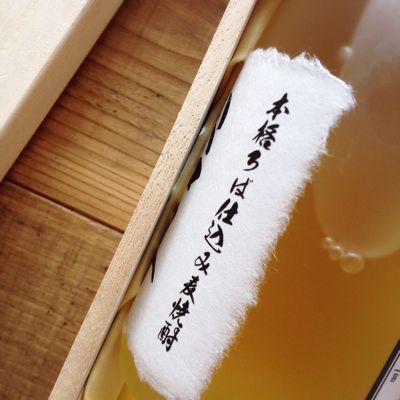 本格ろば仕込み麦焼酎